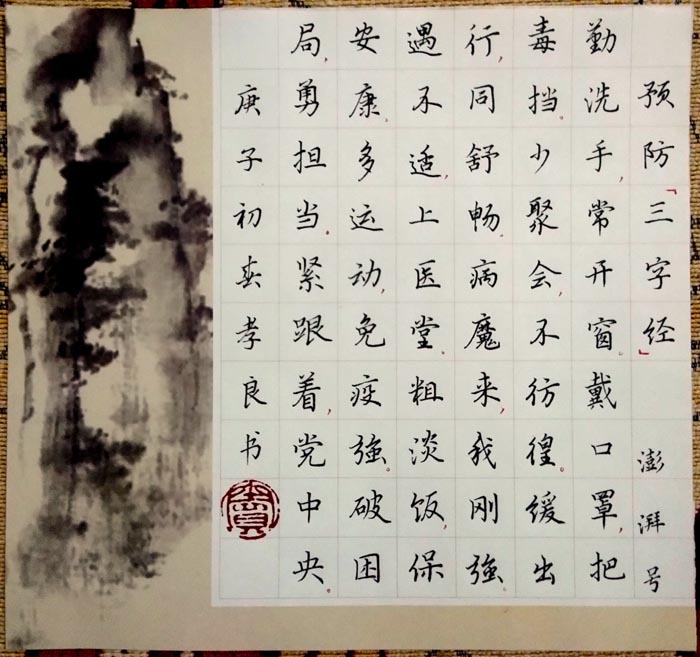 预防「三字经」 澎湃号
勤洗手,常开窗。戴口罩,把
毒挡。少聚会,不彷徨。缓出
行,同舒畅。病魔来,我刚強。
遇不适,上医堂。粗淡饭,保
安康。多运动,免疫強。破困
局,勇担当。紧跟着,党中央。
庚子初春孝良书